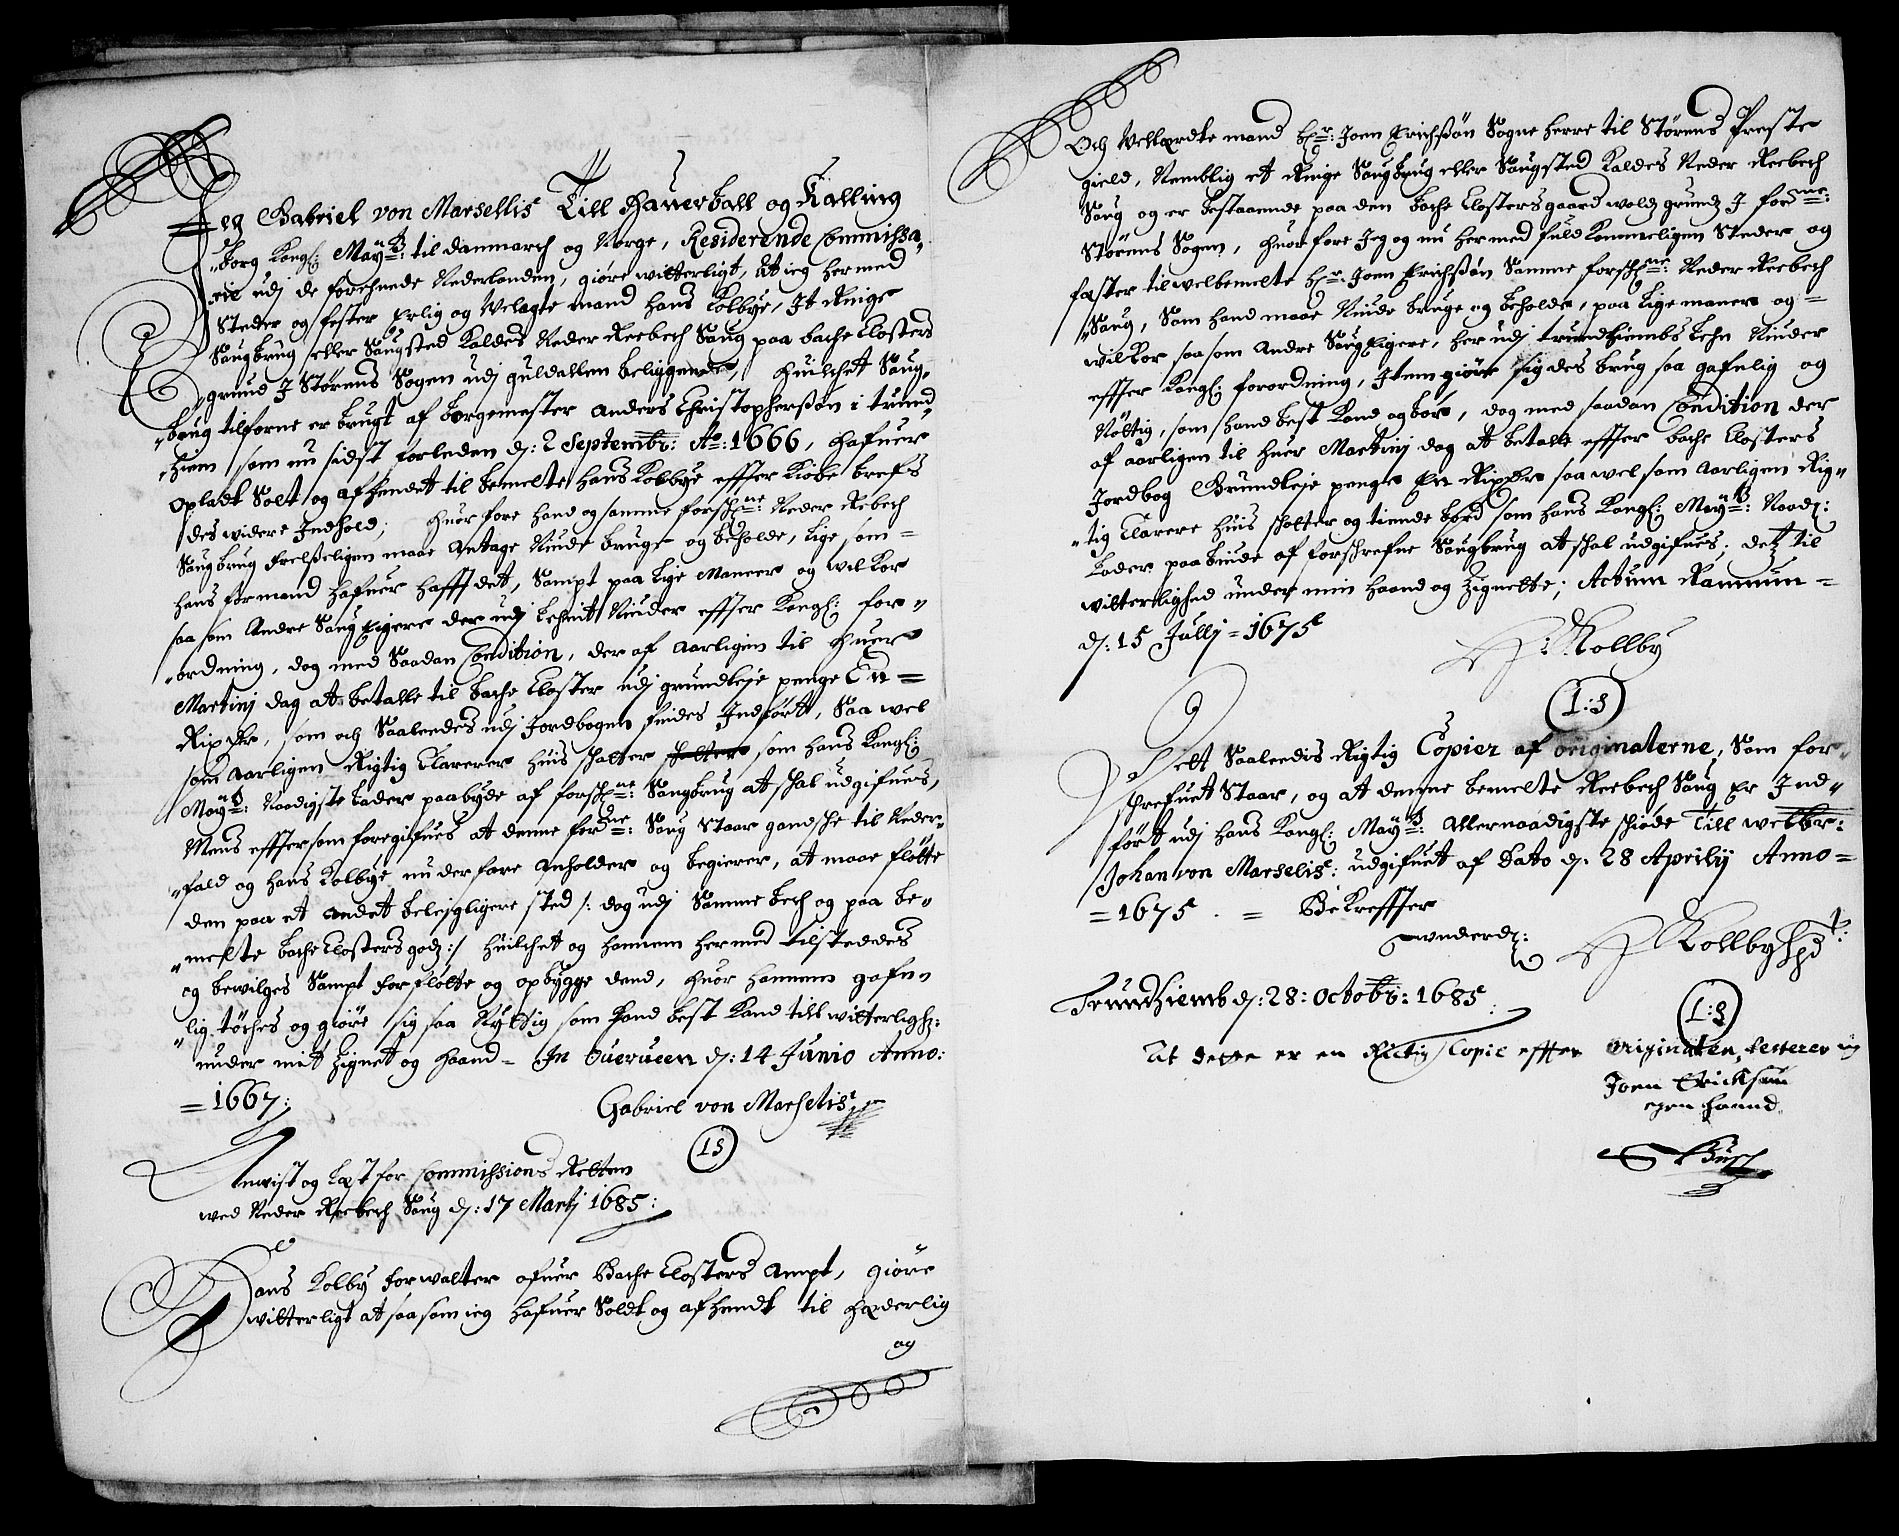 Jeg Gabriel von Marsellis Till Hauerball og Kalling
"borg Kongl: Mayts: til danmarch og Norge, Residerende Commissa"
rie udj de foreenede Nederlanden, giöre witterligt, at ieg hermed
Steder og fester Erlig og Welagte mand Hans Kolbye, It Ringe
Saugbrug eller Saugsted Kaldes Neder Reebech Saug paa Bache Closters
grund J Störens Sogen udj guldallen beliggende, Huilchet Saug"
"brug tilforne er brugt af Borgemester Anders Christophersøn i trund"
"hiem som nu sidst forleden d: 2 Septembr: Ao: 1666, hafuer
opladt Solt og afhendet til bemelte Hans Kolbye effter Kiöbe brefs
des widere Indhold; Huorfore hand og samme forschne: Neder Rebech
Saugbrug Frelsseligen maae Antage Niude bruge og beholde, lige som =
hans formand hafuer hafft det, Sampt paa lige Maneer og wilkor
saa som Andre Saug Eigere der udj Lehnit Niuder effter Kongl: for"
"ordning, dog med Saadan Condition, der af aarligen til Huer
Martinj dag at betalle til Bache Closter udj grundleje penge En =
Rixdr, som och Saaleedes udj Jordbogen findes Indfört, Saa wel
som Aarligen Rigtig Clarerer huis scholter scholter som Hans Kongl:
Mayts: Naadigste lader paabyde af forschne: Saugbrug at schal udgifues,
Mens efftersom foregifues at denne forne: Saug Staar gandsche til Neder"
"fald og Hans Kolbye nu derfore Anholder og begierer, at maae flötte
den paa et andet beleigligere sted /: dog udj Samme bech og paa be"
"melte Bache Closters godz :/ Huilchet og hannem hermed tilsteddes
og bewilges Sampt forflötte og opbygge dend, huor hannem gafn"
"lig töches og giöre sig saa Nyttig som hand best kand till witterlighed:
under mit Zignet og Haand = In Overueen d: 14 Junio Anno:
= 1667:
Gabriel von Marselis
LS
Anwist og Læst for Commissions Retten
wed Neder Reebech Saug d: 17 Martj 1685:
Hans Kolby Forwalter ofuer Bache Closters Ampt, giöre
witterligt at saasom ieg hafuer Soldt og afhendt til Hæderlig
og
Och Wellærdte mand hr: Joen Erichssøn Sogne Herre til Störens Preste
gield, Nemblig et Ringe Saugbrug eller Saugsted Kaldes Neder Reebech
Saug og er bestaaende paa den Bache Closters gaard wolds grund J forne:
Störens Sogen, Huorfore Jeg og nu hermed fuldkommeligen Steder og
faster til welbemelte hr: Joen Erichssøn Samme forschne: Neder Reebech
"Saug, Som hand maae Niude bruge og beholde, paa lige maner og =
wilkor saa som Andre Saug Eigere, her udj trundhiembs Lehn Niuder
effter Kongl: forordning, Item giöre sig des brug saa gafnlig og
Nöttig, som hand best Kand og bör, dog med saadan Condition der
af aarligen til Huer Martinj dag at betalle effter Bache Closters
Jordbog Grundleje penge En Rixdr saa wel som Aarligen Rig"
"tig Clarere Huis scholter og tiende bord som hans Kongl: Mayts: Naadj:
Lader paabiude af forschrefne Saugbrug at schal udgifues; detz til
witterlighed under min Haand og Zignette; Actum Rammun =
d: 15 Jullj = 1675
H: Kollby
L:S
Dett Saaleedis Rigtig Copier af originalerne, Som for"
schrefuet Staar, og at denne bemelte Reebech Saug Er Ind"
fört udj Hans Kongl: Mayts: Allernaadigste schiöde Till welbr:
Johan von Marselis: udgifuet af Dato d: 28 Aprilij Anno =
= 1675 . = Bekreffter
underd:
H Kollby
Trundhiemb d: 28: Octobr: 1685
L:S
At dette er en Rictig Copie effter originalen, testerer
Joen Ericksøn
egen haand